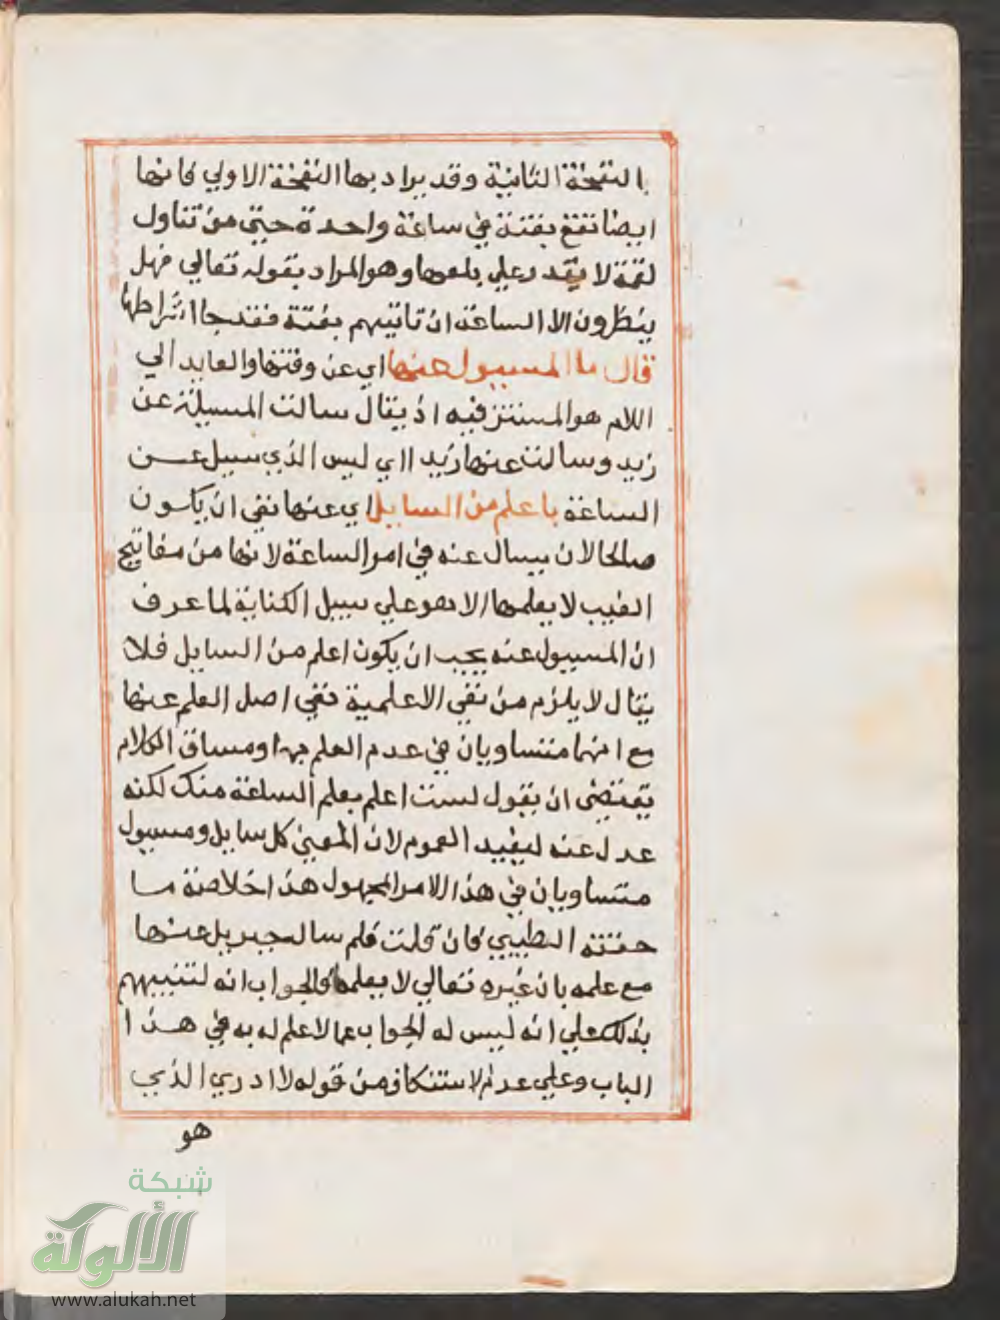 بالنفخة الثانية وقد يراد بها النفخة الاولي فانها
ايضا تقع بغتة في ساعة واحدة حتي من تناول
لقمة لا يقدر علي بلعها وهو المراد بقوله تعالي فهل
ينظرون الا الساعة ان تاتيهم بغتة فقد جا اشراطها
قال ما المسيول عنها اي عن وقتها والعايد الي
اللام هو المستتر فيه اذ يقال سالت المسيلة عن
زيد وسالت عنها زيدا اي ليس الذي سيل عن
الساعة باعلم من السايل اي عنها نفي ان يكون
صالحا لان يسال عنه في امر الساعة لانها من مفاتيح
الغيب لا يعلمها الا هو علي سبيل الكناية لما عرف
ان المسيول عنه يجب ان يكون اعلم من السايل فلا
يقال لا يلزم من نفي الاعلمية نفي اصل العلم عنها
مع انهما متساويان في عدم العلم بها ومساق الكلام
يقتضي ان يقول لست اعلم بعلم الساعة منك لكنه
عدل عنه ليفيد العموم لان المعني كل سايل ومسيول
متساويان في هذا الامر المجهول هذا خلاصة ما
حققه الطيبي فان قلت فلم ساله جبريل عنها
مع علمه بان غيره تعالي لا يعلمها فالجواب انه لتنبيههم
بذلك علي انه ليس له الجواب عما لا علم له به في هذا
الباب وعلي عدم الاستنكاف من قوله لا ادري الذي
هو
شبكة
الألوكة
www.alukah.net